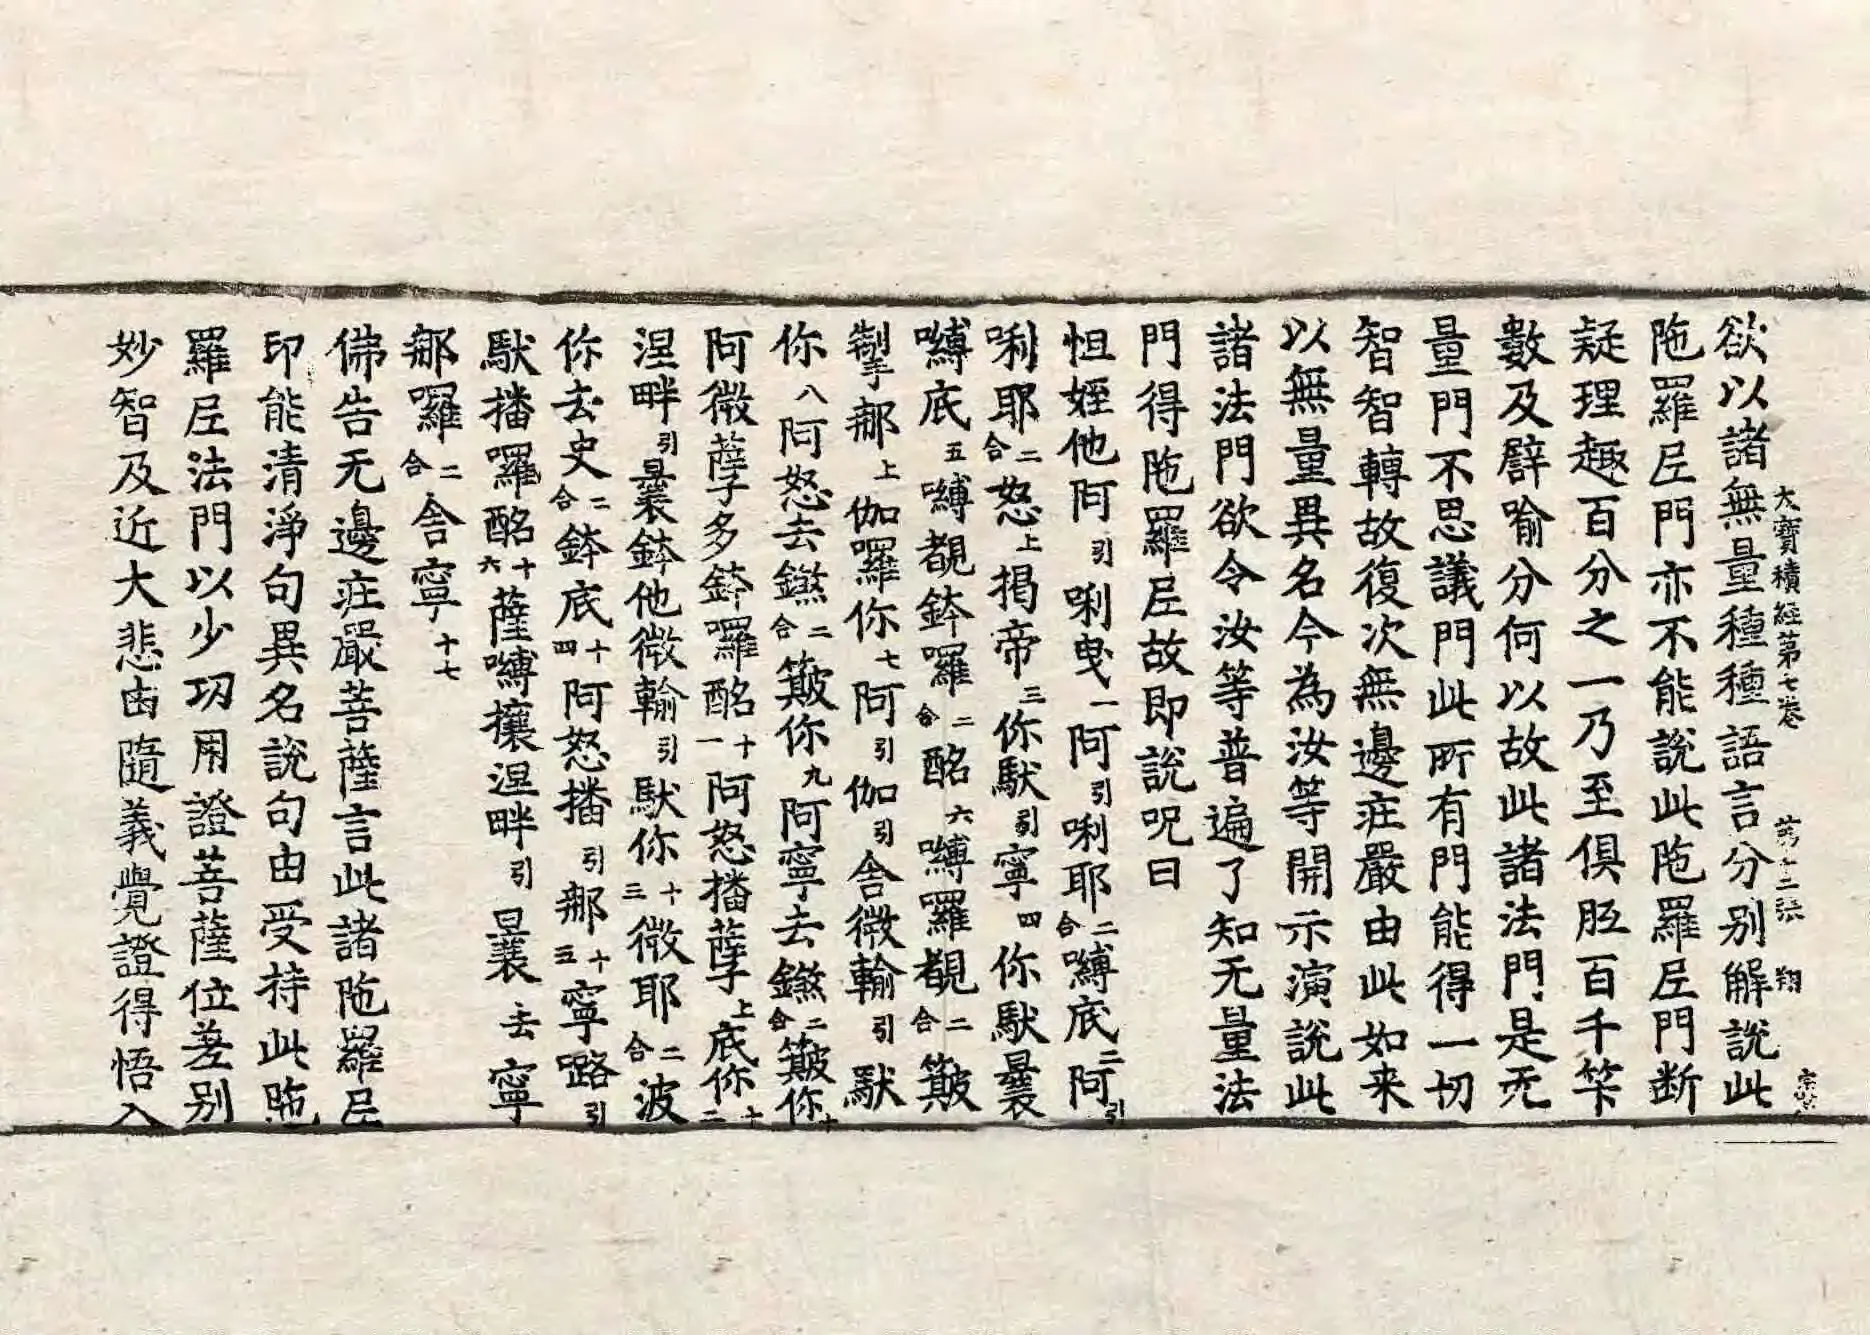 大寶積經第七卷 第十二張 翔
欲以諸無量種種語言分別解說此
陁羅尼門亦不能說此陁羅尼門断
疑理趣百分之一乃至俱胝百千笇
數及譬喻分何以故此諸法門是无
量門不思議門此所有門能得一切
智智轉故復次無邊症嚴由此如来
以無量異名今為汝等開示演說此
諸法門欲令汝等普遍了知无量法
門得陁羅尼故即說呪曰
怛姪他阿引唎曳一阿引唎耶二合嚩底二阿引
唎耶二合怒上揭帝三你馱引寧四你馱曩
嚩底五嚩覩鉢囉二合酩六嚩囉覩二合簸
掣那上伽囉你七阿引伽引舍微輸引馱
你八阿怒去鑑二合簸你九阿寧去鑑二合簸你十
阿微薩多鉢囉酩十一阿怒播薩上底你十二
涅畔引曩鉢他微輸引馱你十三微耶二合波
你去史二合鉢底十四阿怒播引那十五寧路引
馱播囉酩十六薩嚩攘涅畔引曩去寧
那囉二合舍寧十七
佛告无邊症嚴菩薩言此諸陁羅尼
印能清淨句異名說句由受持此陁
羅尼法門以少功用證菩薩位差别
妙智及近大悲由隨義覺證得悟入